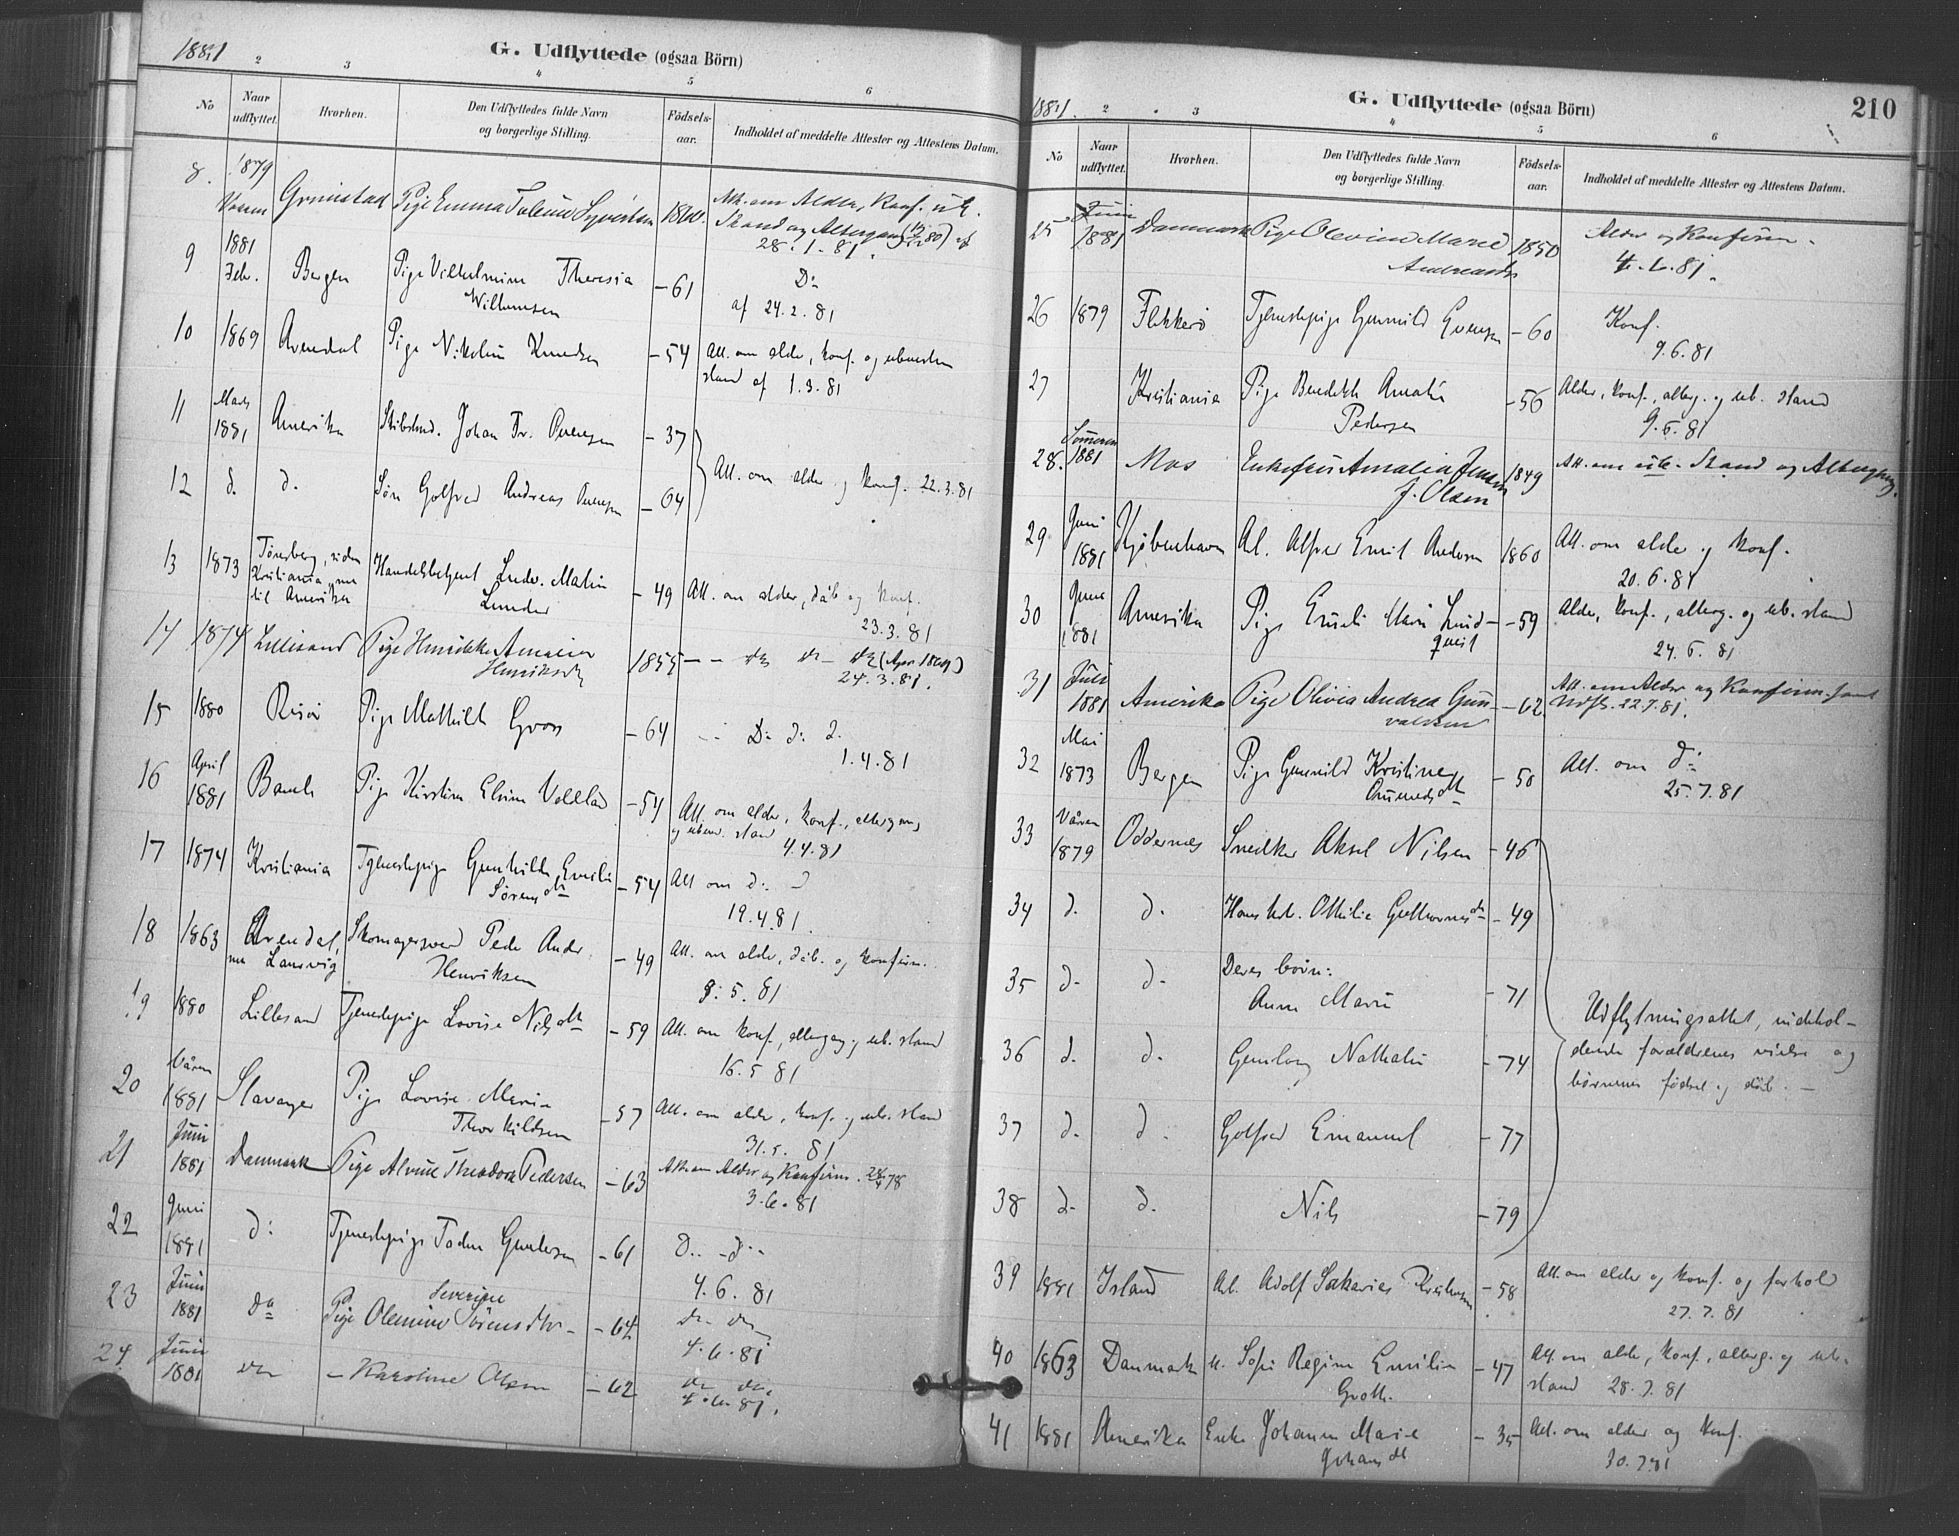 1881
G. Udflyttede (ogsaa Börn)
2 3 4 5 6
No
Naar udflyttet.
Hvorhen.
Den Udflyttedes fulde Navn og borgerlige Stilling.
Födsels-aar.
Indholdet af meddelte Attester og Attestens Datum.
8. 1879 Grimstad Pige Emma 1860. Att. om Alder, Konf. ug.
Stand og Altergang af
28.1.81.
9 1881 Febr. Bergen Pige Vilhelmine Theresia - 61 Do
Willumsen af 24.2.81
10 1869 Arendal Pige Nikoline Knudsen - 54 Att. om alder, konf. og
stand af 1.3.81
11 Marts 1881 Amerika Johan Fr. - 37
12 d. d. Søn Golfred Andreas - 64 Att. om alder og konf. 22.3.81
13 1873 Tönsberg, siden Handelsbetjent Ludv. Mathin - 49 Att. om alder, dåb og konf.
Kristiania, nu Lunder 23.3.81
til Amerika
14 1874 Lillesand Pige Henrikke Amalia 1855 - - do do - do
Henriksdtr 24.3.81.
15 1880 Risör Pige Mathilde - 64 D: d: d.
1.4.81
16 April 1881 Bamle Pige Kirstine - 54 Att. om alder, konf., altergang
og stand 4.4.81
17 1874 Kristiania Tjenestepige Gunhilde Emilie - 54 Att om d:
Sörensdtr 19.4.81.
18 1863 Arendal, Skomagersvend Peder Andr. - 49 Att. om alder, dåb. og konfirm.
nu Laurvig Henriksen 9.5.81
19 1880 Lillesand Tjenestepige Lovise Nilsdtr - 59 Att. om konf., altergang og ub. stand
16.5.81
20 Våren 1881 Stavanger Pige Lovise Marie - 57 Att. om alder, konf. og ub. stand
Thorkildsen 31.5.81
21 Juni 1881 Danmark Pige Alvine Theodora Pedersen - 63 Att. om Alder og Konfirm.
3.6.81
22 Juni 1881 d: Tjenestepige - 61 D.. - d..
4.6.81
23 Juni 1881 do Severine
Pige Olemine Sörensdtr - 62 do do
4.6.81
24 Juni 1881 do - Karoline Olsen - 62 do do.
4.6.81.
1881.
G. Udflyttede (ogsaa Börn)
210
2 3 4 5 6
No
Naar udflyttet.
Hvorhen.
Den Udflyttedes fulde Navn og borgerlige Stilling.
Födsels-aar.
Indholdet af meddelte Attester og Attestens Datum.
25 Juni 1881 Danmark Pige Olevine Marie 1850 Alder og Konfirm.
Andreasdtr 4.6.81.
26 1879 Flekkerö Tjenestepige Gunnild Evensen - 60 Konf.
9.6.81
27 Kristiania Pige Benedikte Amalie - 56 Alder, konf., alterg. og ub. stand
Pedersen 9.6.81
28. Sommeren 1881 Mos Enkefru Amalia Jensen 1849 Att. om ub. Stand og Altergang.
f. Olsen
29 Juni 1881 Kjöbenhavn Arb. Alfred Emil Andersen 1860 Att. om alder og konf.
20.6.81
30 Juni 1881 Amerika Pige Emili Marie Lind- - 59 Alder, konf., alterg. og ub. stand
qvist 24.6.81
31 Juli 1881 Amerika Pige Olivia Andrea Gun- - 62 Att. om Alder og Konfirm. samt
valdsen Udfl. 22.7.81.
32 Mai 1873 Bergen Pige Gunnild Kristine - 50 Att. om d:
25.7.81
33 Våren 1879 Oddernes Snedker Aksel Nilsen - 46
34 d. d. Hans kd. Othilie Guttormsdtr - 49
35 d. d. Deres börn:
Anne Marie - 71
Udflytningsattest, indehol-
dende forældrenes vielse og
börnenes födsel og dåb. -
36 d. d. Gunlaug Nathalie - 74
37 d. d. Golfred Emanuel - 77
38 d. d. Nils - 79
39 1881 Island Arb. Adolf Sakarias Kristensen - 58 Att. om alder og konf. og forhold
27.7.81
40 1863 Danmark Sofie Regine Emilie - 47 Att. om alder, konf., alterg. og ub.
Groth. stand 28.7.81
41 1881 Amerika Enke Johanne Marie - 35 Att. om alder og konf.
Johansdt 30.7.81